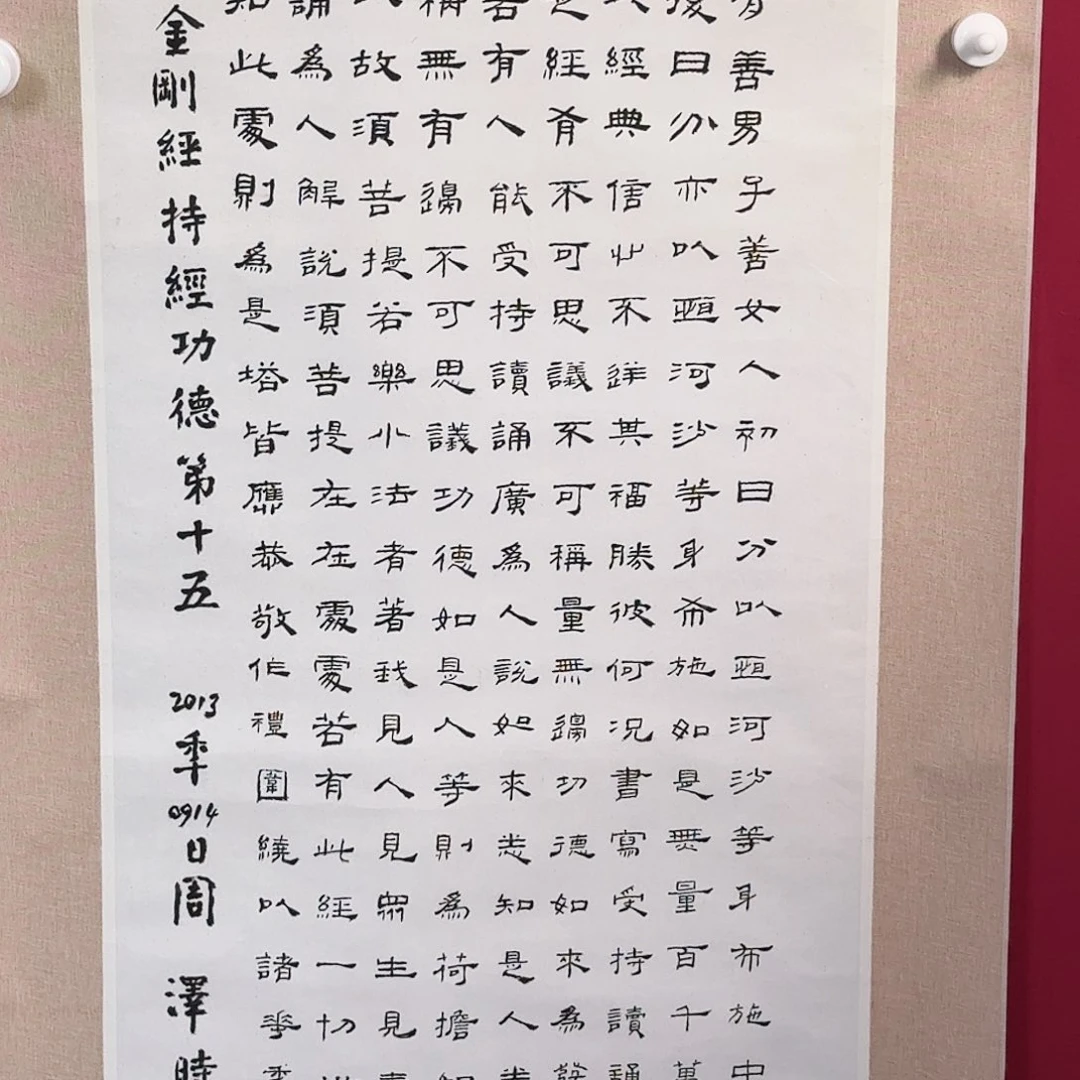 有善男子善女人初日分以恒河沙等身布施中
後日分亦以恒河沙等身布施如是無量百千萬
經典信心不逆其福勝彼何況書寫受持讀誦
是經有不可思議不可稱量無邊功德如來為發
若有人能受持讀誦廣為人說如來悉知是人悉
稱無有邊不可思議功德如是人等則為荷擔如
故須菩提若樂小法者著我見人見眾生見壽
誦為人解說須菩提在在處處若有此經一切世
知此處則為是塔皆應恭敬作禮圍繞以諸華香
金剛經持經功德第十五 2013年0914日周澤時